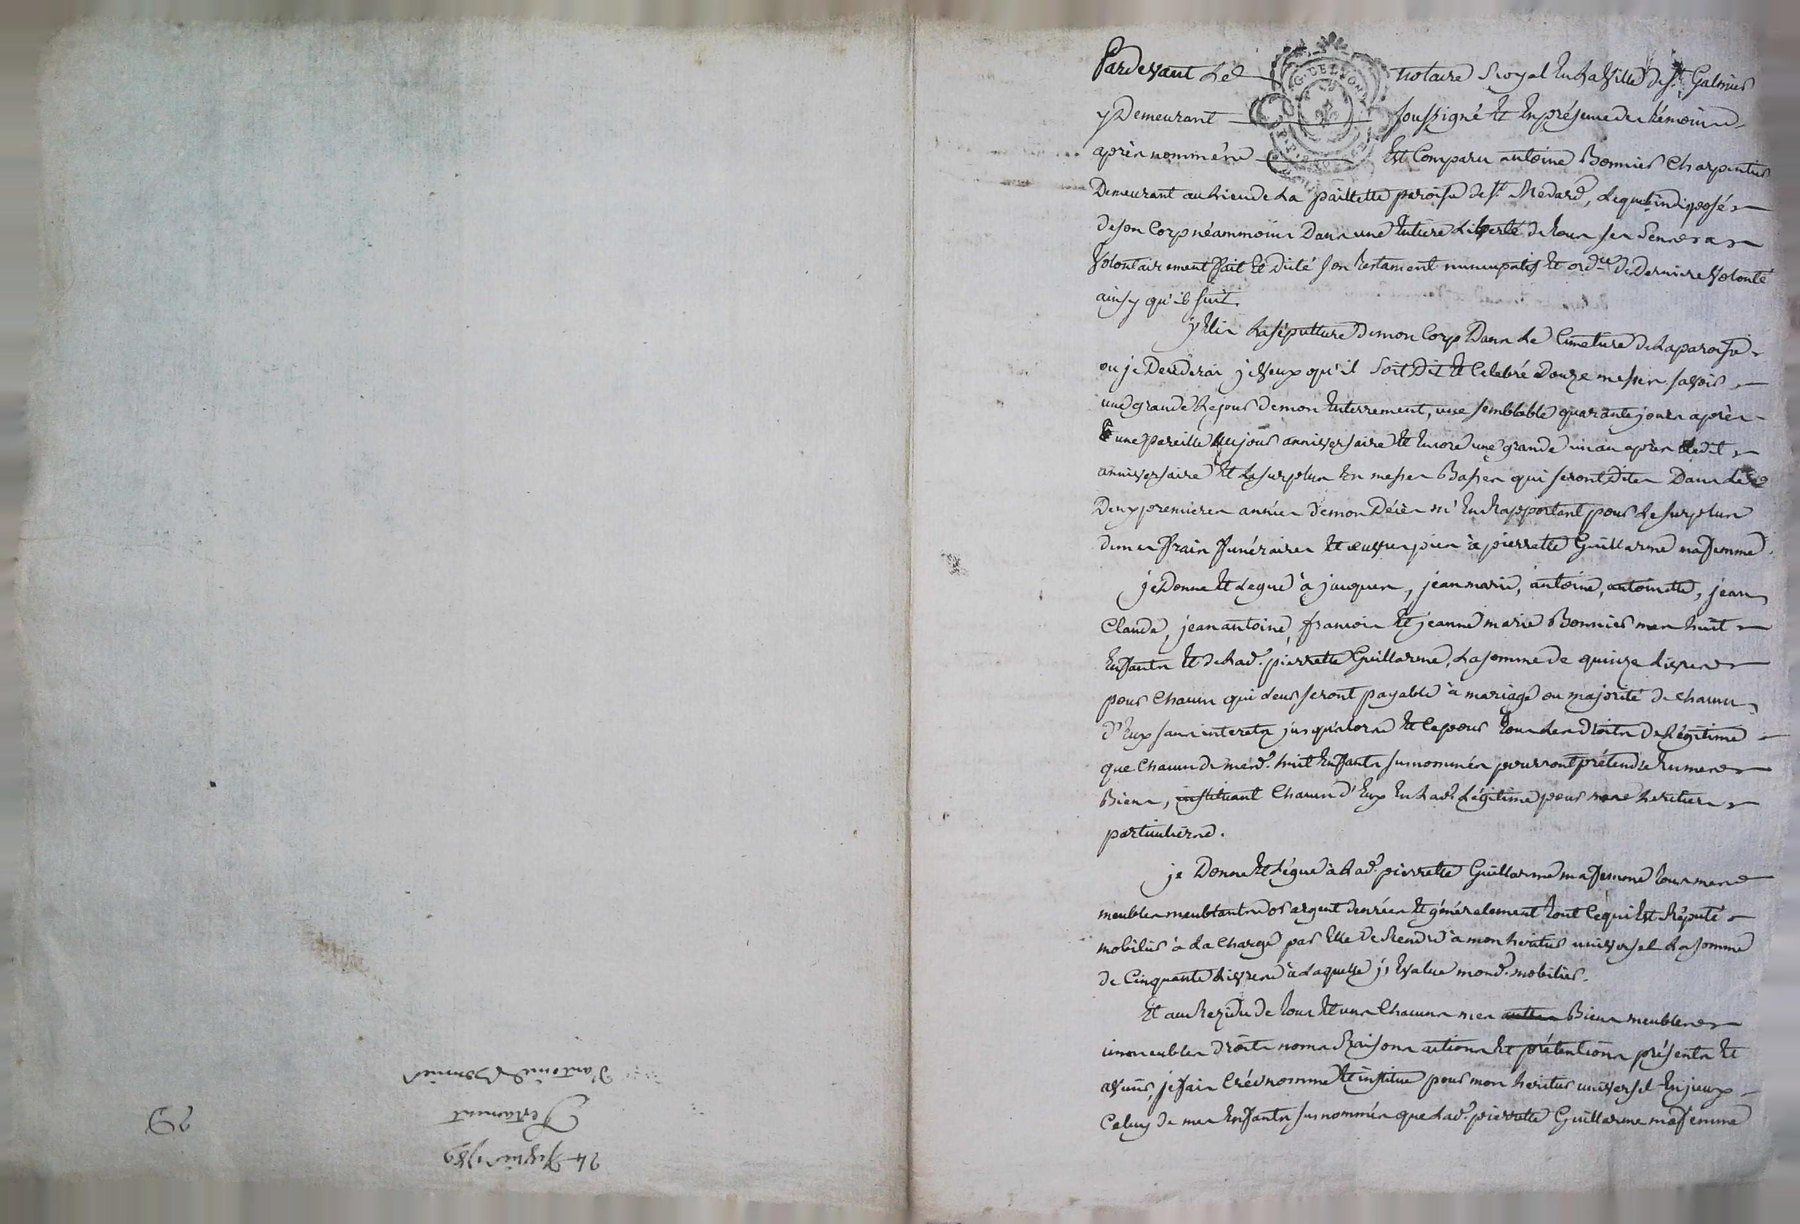 Pardevant Le notaire Royal En La Ville de St Galmier
y Demeurant soussigné Et En présence des témoins
après nommés Est Comparu antoine Bonnier Charpentier
Demeurant au Lieu de La paillette paroisse de St Médard, Lequel indisposé
de son Corp néammoins Dans une Entiere Liberté de tous ses Sens a
Volontairement fait Et Dicté son testament nuncupatif Et ordre de Derniere Volonté
ainsy qu'il suit
j'Elis La sépulture de mon Corp Dans Le Cimetiere de La paroisse
ou je Déséderai je veux qu'il soit Dit Et Célébré Douze messes savoir
une grande Le jour de mon Enterrement, une semblable quarante jours après
une pareille Au jour anniversaire Et Encore une grande un an après Ledit
anniversaire Et Le surplus En messes Basses qui seront Dites Dans Les
Deux premieres années de mon Décès m'En Rapportant pour Le surplus
de mes frais funéraires Et œuvres pies à pierrette Guillarme ma femme
je Donne Et Legue à jacques, jean marie, antoine, antoinette, jean
Claude, jean antoine, francois Et jeanne marie Bonnier mes huit
Enfants Et de Lad. pierrette Guillarme, La somme de quinze Livres
pour Chacun qui Leur seront payable à mariage ou majorité de Chacun
d'Eux sans interets jusqu'alors Et Ce pour tous Les droits De Légitime
que Chacun de mesd. huit Enfants susnommés pourront prétendre En mes
Biens, instituant Chacun d'Eux En Lad. Légitime pour mes heritiers
particuliers.
je Donne Et Légue à Lad. pierrette Guillarme ma femme tous mes
meubles meublants or argent denrées Et généralement tout Ce qui Est Réputé
mobilier à La Charge par Elle de Rendre à mon heritier universel La somme
de Cinquante Livres à Laquelle j'Evalue mond. mobilier.
Et au Rezidu de tous Et uns Chacuns mes autres Biens meubles
immeubles droits noms Raisons actions Et prétentions présents Et
avenir, je fais Crée nomme Et institue pour mon heritier universel En jceux
Celuy de mes Enfants susnommés que Lad. pierrette Guillarme ma femme
24 Fevrier 1789
Testament
d'antoine Bonnier